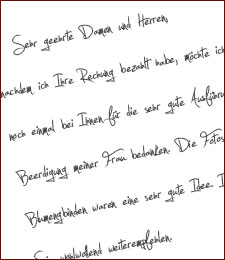 Sehr geehrte Damen und Herren,
nachdem ich Ihre Rechung bezahlt habe, möchte ich
noch einmal bei Ihnen für die sehr gute Ausführu
Beerdigung meiner Frau bedanken. Die Fotos
Blumengbinden waren eine sehr gute Idee. I
wohlwollend weiterempfehlen.